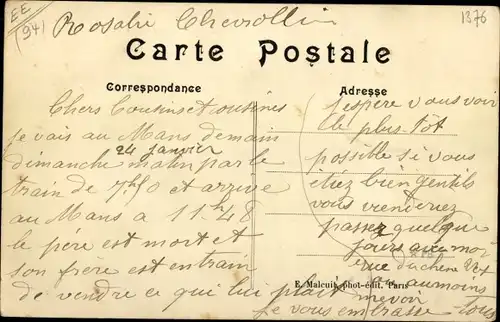 EE
(94)
Rosalie Chevrollier
1376
Carte Postale
Correspondance
Adresse
Chers Cousins et cousines
je vais au Mans demain
24 janvier
dimanche matin par le
train de 7h50 et arrive
au Mans a 11h48
le père est mort et
son frère est en train
de vendre ce qui lui plait
j'espère vous voir
le plus tôt
possible si vous
étiez bien gentils
vous viendriez
passez quelque
jours au
rue
au moins
me voir
je vous embrasse tous
E. Malcuit, phot-édit. Paris